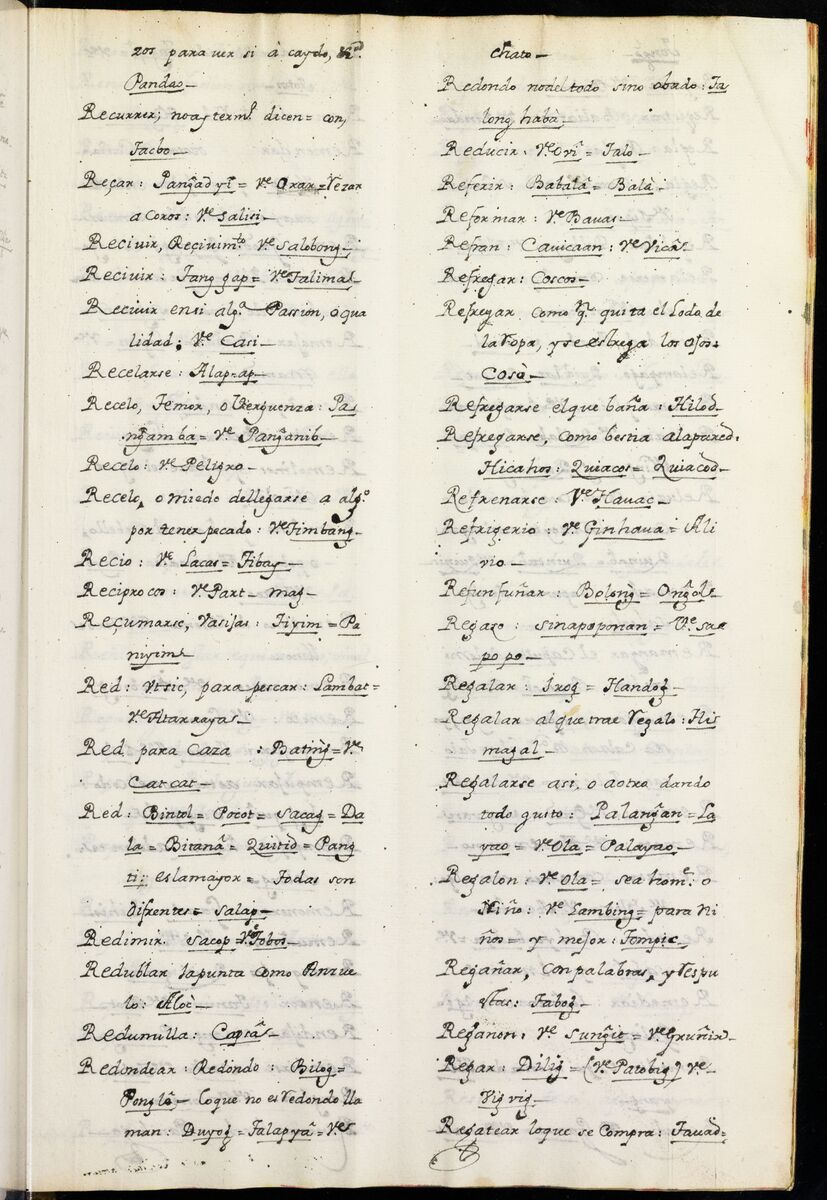 zos para ver si à caydo,
Pandas
Recurrir; no ay term.º dicen = con,
Tacbo
Reçar: Pang̃adyi = V.e Orar = Rezar
a Coros: V.e Salisi
Reciuir, Reçiuim.to V.e Salobong
Reciuir: Tang gap = V.e Talimas
Reciuir en si alg.ª Passion, o qua
lidad; V.e Casi
Recelarse: Alap-ap
Recelo, Temor, o Verguenza: Pa
ng̃amba = V.e Pang̃anib
Recelo: V.e Peligro
Recelo, o miedo de llegarse a alg.º
por tener pecado: V.e Timbang
Recio: V.e Lacas = Tibay
Reciprocos: V.e Part. mag
Reçumarse, Vasijas: Tiyim = Pa
niyim
Red: Vt sic, para pescar: Lambat =
V.e Atarrayas
Red para Caza : Bating = V.e
Cat cat
Red: Bintol = Pocot = Sacag = Da
la = Bitana = Quitid = Pang
ti: es la mayor = Todas son
difrentes = Salap
Redimir. Sacop V.e Tobos
Redublar la punta como Anzue
lo: Aloc
Redumilla: Capsa
Redondear: Redondo: Bilog =
Pongla Lo que no es redondo lla
man: Duyog = Talapya = V.es
chato
Redondo no del todo sino obado: Ta
long, habà
Reducir: V.e Ovi = Talo
Referir: Babalà = Balà
Reformar: V.e Bauas
Refran: Cauicaan: V.e Vicas
Refregar: Coscos
Refregar, como q.n quita el lodo de
la ropa, y se estrega los ojos:
Cosò
Refregarse el que baña: Hilod
Refregarse, como bestia a la pared:
Hicahos: Quiacos = Quiacod
Refrenarse: V.e Hauac
Refrigerio: V.e Ginhaua = Ali
vio
Refunfuñar: Bolong = Ong̃ol
Regazo: sinapoponan = V.e sa
po po
Regalar: Irog = Handog
Regalar al que trae regalo: His
magal
Regalarse asi, o a otro dando
todo gusto: Palang̃an = La
yao = V.e Ola = Palayao
Regalon: V.e Ola = sea hom.e o
Niño: V.e Lambing = para Ni
ños = y mejor: Tompic
Regañar, con palabras, y respu
stas: Tabog
Regañon: V.e Sung̃it = V.e Gruñir
Regar: Dilig = (V.e Patobig) V.e
Vig vig
Regatear lo que se compra: Tauad =